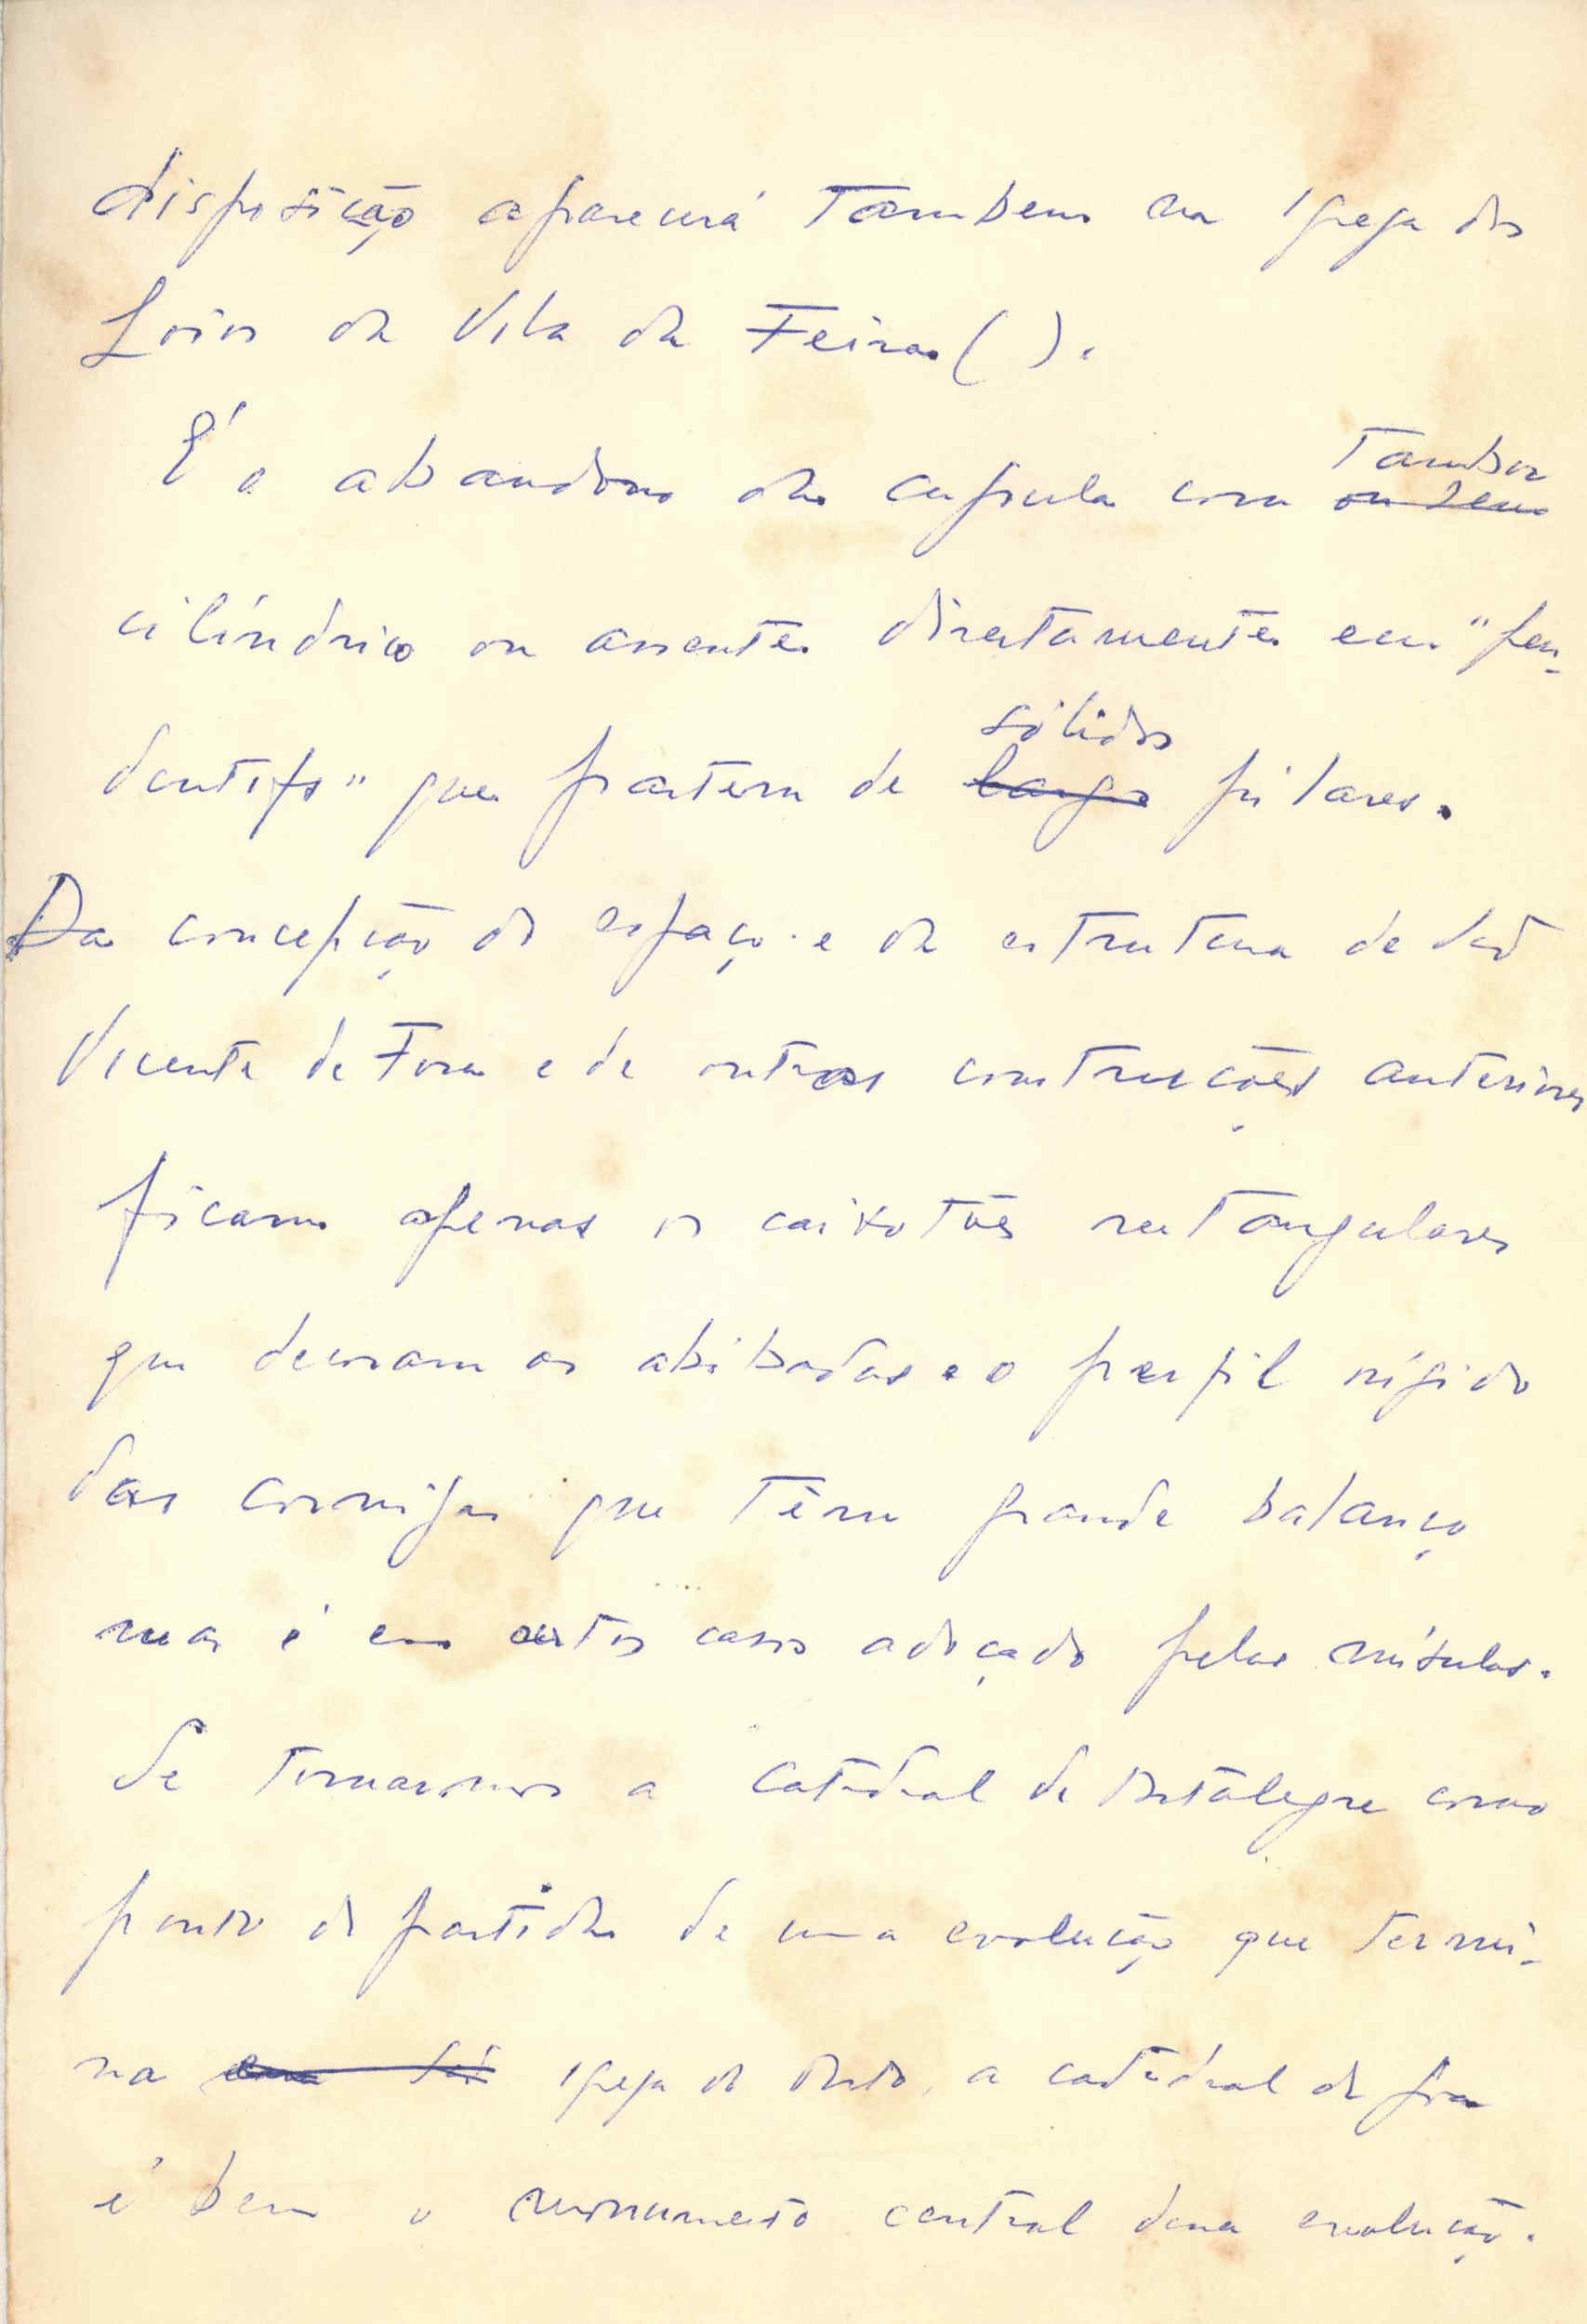 disposição aparecerá Tambem na Igreja dos
Loios da Vila da Feira ( ).
É o abandono da cupula com ~~ou sem~~ Tambor
cilíndrico ou assente directamente em "pen-
dentifs" que partem de ~~largos~~ sólidos pilares.
Da concepção do espaço e da estrutura de São
Vicente de Fora e de outras construções anteriores
ficam apenas os caixotões rectangulares
que decoram as abóbadas e o perfil rígido
das cornijas que Têm grande balanço
mas é em certos casos adoçado pelas mísulas.
Se Tomarmos a catedral de Portalegre como
ponto de partida de uma evolução que termi-
na ~~em~~ Igreja do Porto, a catedral de
é bem o monumento central dessa evolução.